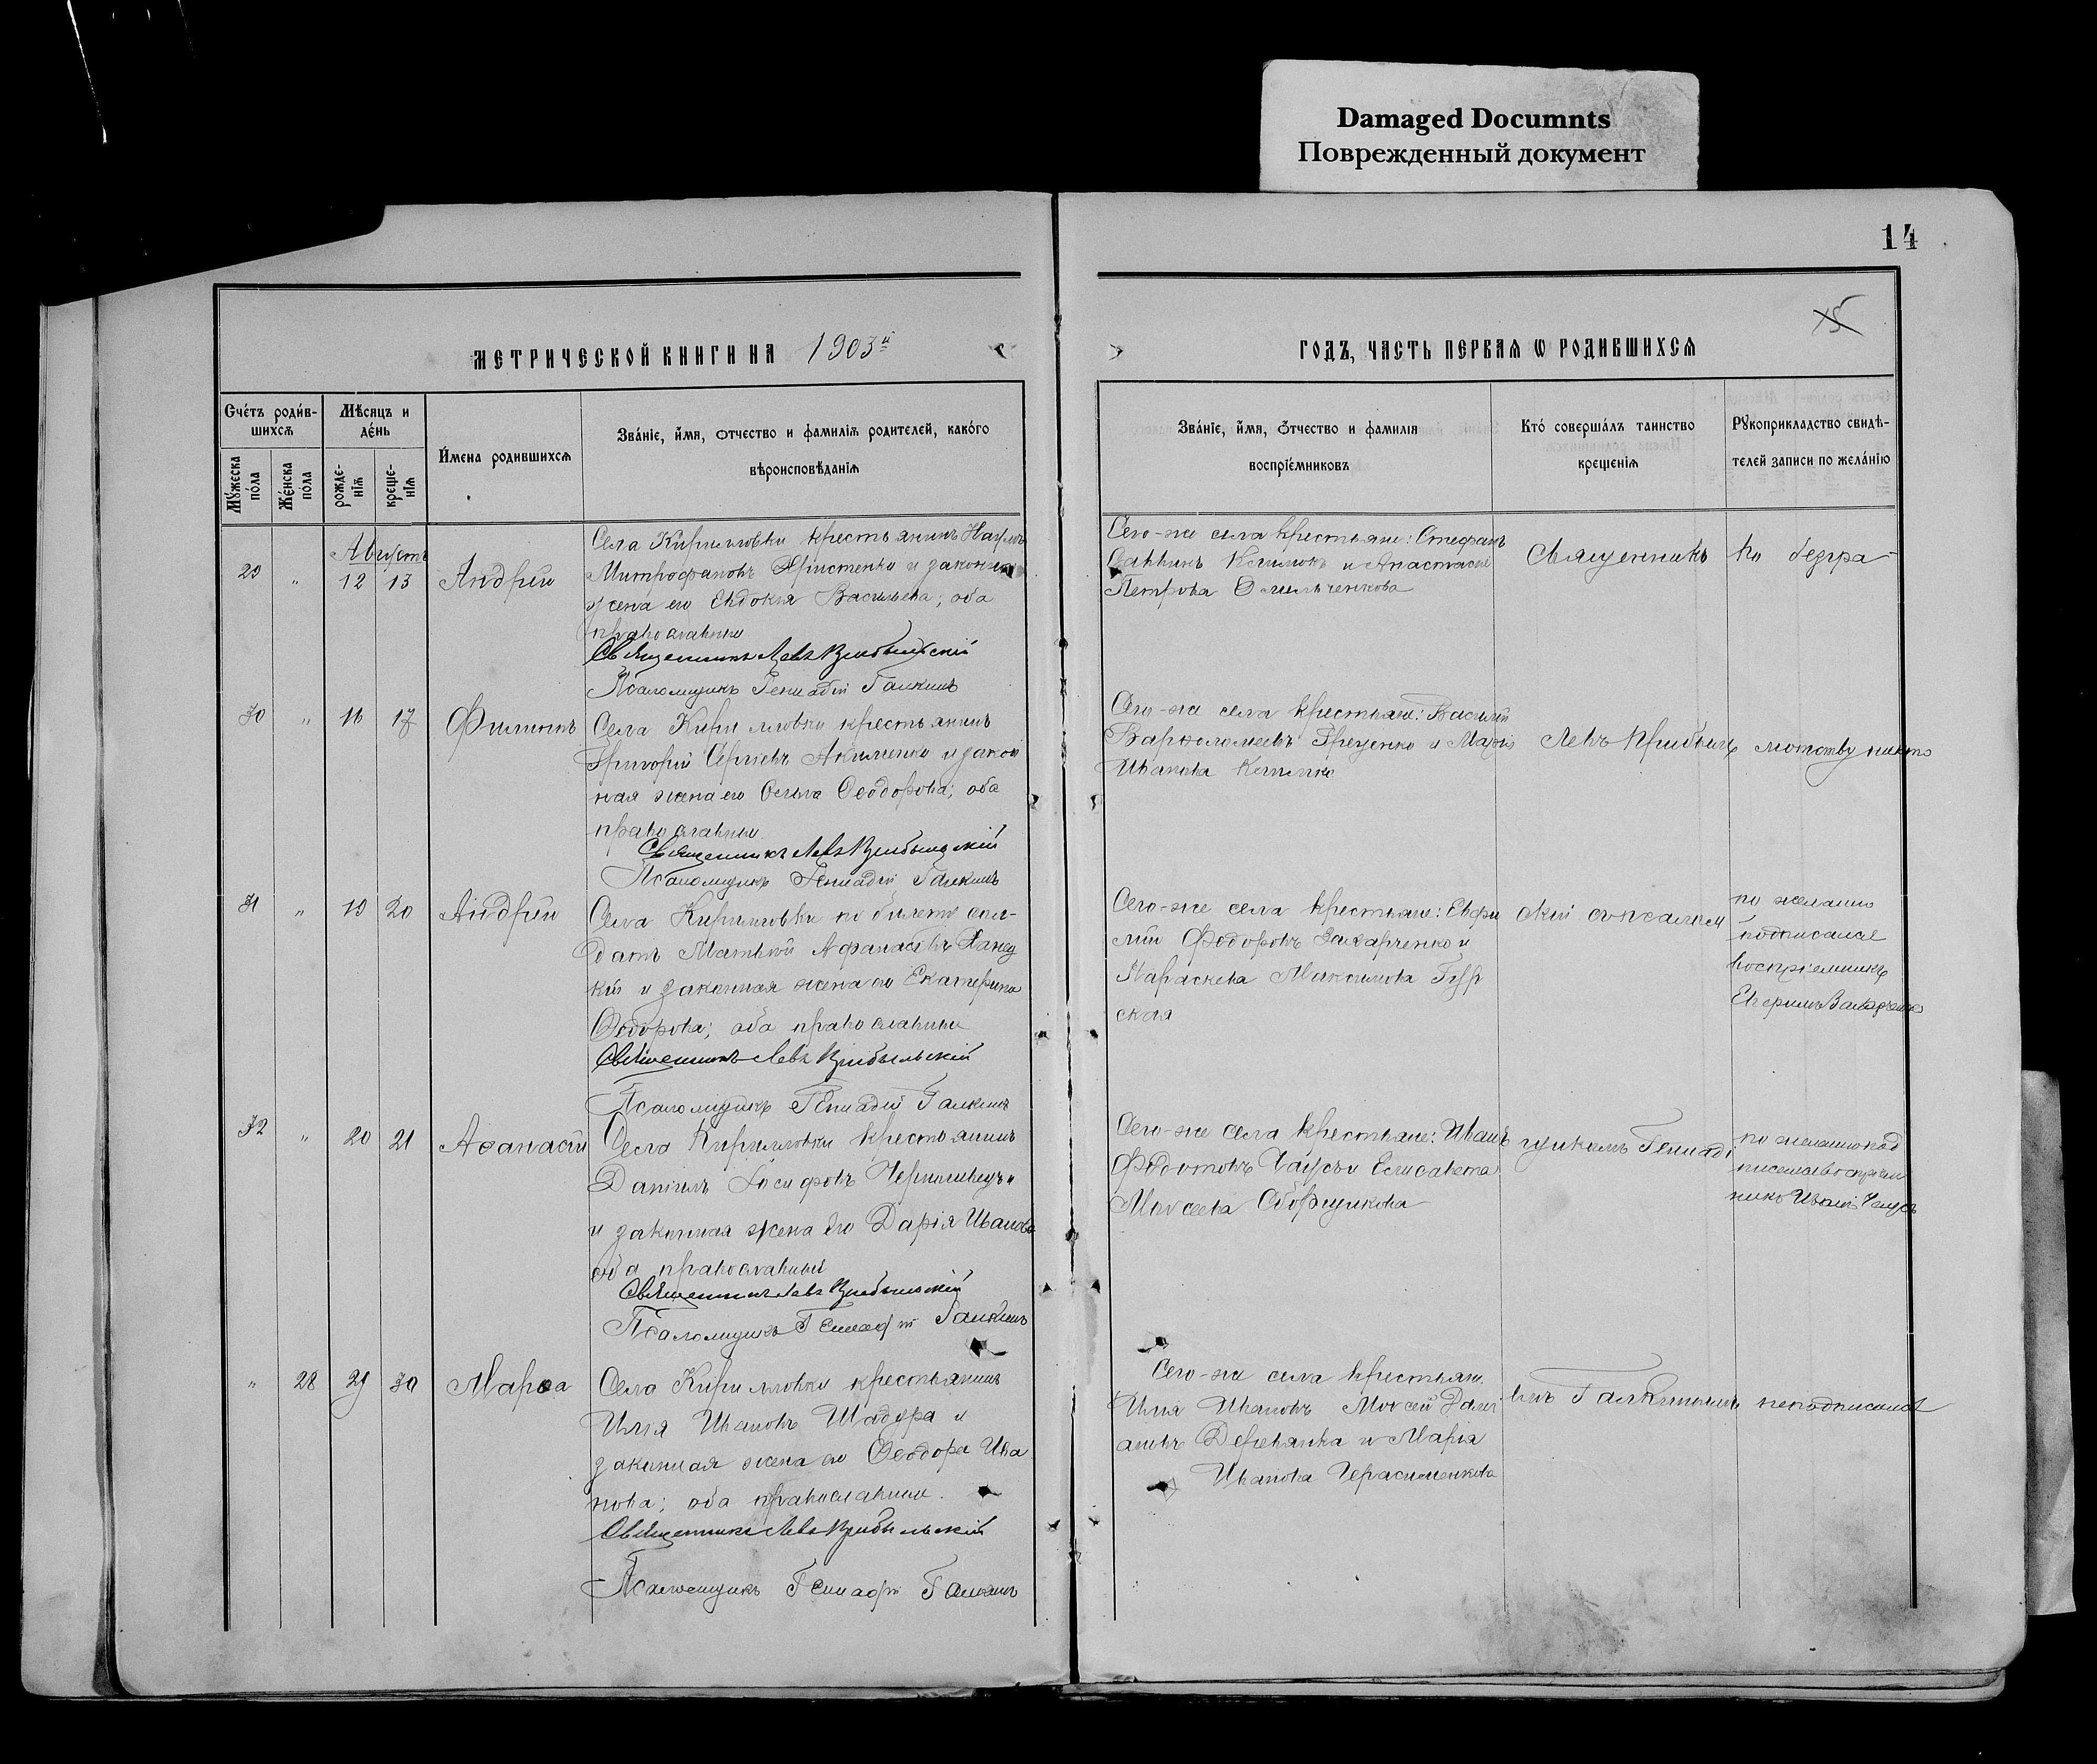 Damaged Documnts
Поврежденный документ
14
15
МЕТРИЧЕСКОЙ КНИГИ НА 1903й
ГОДЪ, ЧАСТЬ ПЕРВАЯ Ѡ РОДИВШИХСѦ
Счéтъ родúв-
шихсѧ
Мѣсяцъ и
дéнь
Мꙋжеска
пóла
Жéнска
пóла
рожде-
нїѧ
креще-
нїѧ
И́мена родившихсѧ
Звáнїе, и́мя, ѻтчество и фамилїѧ родителей, какóго
вѣроисповѣданїѧ
Звáнїе, и́мя, ѻ́тчество и фамилїя
воспрїéмниковъ
Ктó совершáлъ таинство
крещенїѧ
Рꙋкоприкладство свидѣ-
телей записи по желáнїю
Августъ
29 " 12 13 Андрій
Села Кирилловки крестьянинъ Наумъ
Митрофановъ Христенко и законная
жена его Евдокія Васильева; оба
православные
Священникъ Левъ Прибыльскій
Псаломщикъ Генадій Галкинъ
Сего-же села крестьяне: Стефанъ
и Анастасія
Петрова
Священникъ
По безгра-
30 " 16 17 Филиппъ
Села Кирилловки крестьянинъ
Григорій Сергіевъ Акименко и закон
ная жена его Ольга Ѳеодорова; оба
православные
Священникъ Левъ Прибыльскій
Псаломщикъ Генадій Галкинъ
Сего-же села крестьяне: Василій
Варѳоломеевъ Греценко и Марія
Иванова
Левъ Прибыль
мотству никто
31 " 19 20 Андрій
Села Кирилловки по билету сол-
датъ Матвій Афанасіевъ
кій и законная жена его Екатерина
Ѳеодорова; оба православные
Священникъ Левъ Прибыльскій
Псаломщикъ Генадій Галкинъ
Сего-же села крестьяне: Евфи
мій Федоровъ Захарченко и
Параскева Максимова Гур
ская
скій съ псалом
по желанію
подписался
воспріемникъ
Евфимъ Захарченко
32 " 20 21 Аѳанасій
Села Кирилловки крестьянинъ
Даніилъ Іосифовъ
и законная жена его Дарія Иванова
оба православные
Священникъ Левъ Прибыльскій
Псаломщикъ Генадій Галкинъ
Сего-же села крестьяне: Иванъ
Федотовъ Чаусъ и Елисавета
Моисеева Сборщикова
щикомъ Генаді
по желанію под
писался воспріем
никъ Иванъ Чаусъ
" 28 29 30 Марѳа
Села Кирилловки крестьянинъ
Илія Ивановъ Шадура и
законная жена его Ѳеодора Ива
нова; оба православные.
Священникъ Левъ Прибыльскій
Псаломщикъ Генадій Галкинъ
Сего-же села крестьян.
Илія Ивановъ Моисей Дамі
ановъ Деревянка и Марія
Иванова Герасименкова
емъ Галкинымъ
неподписался